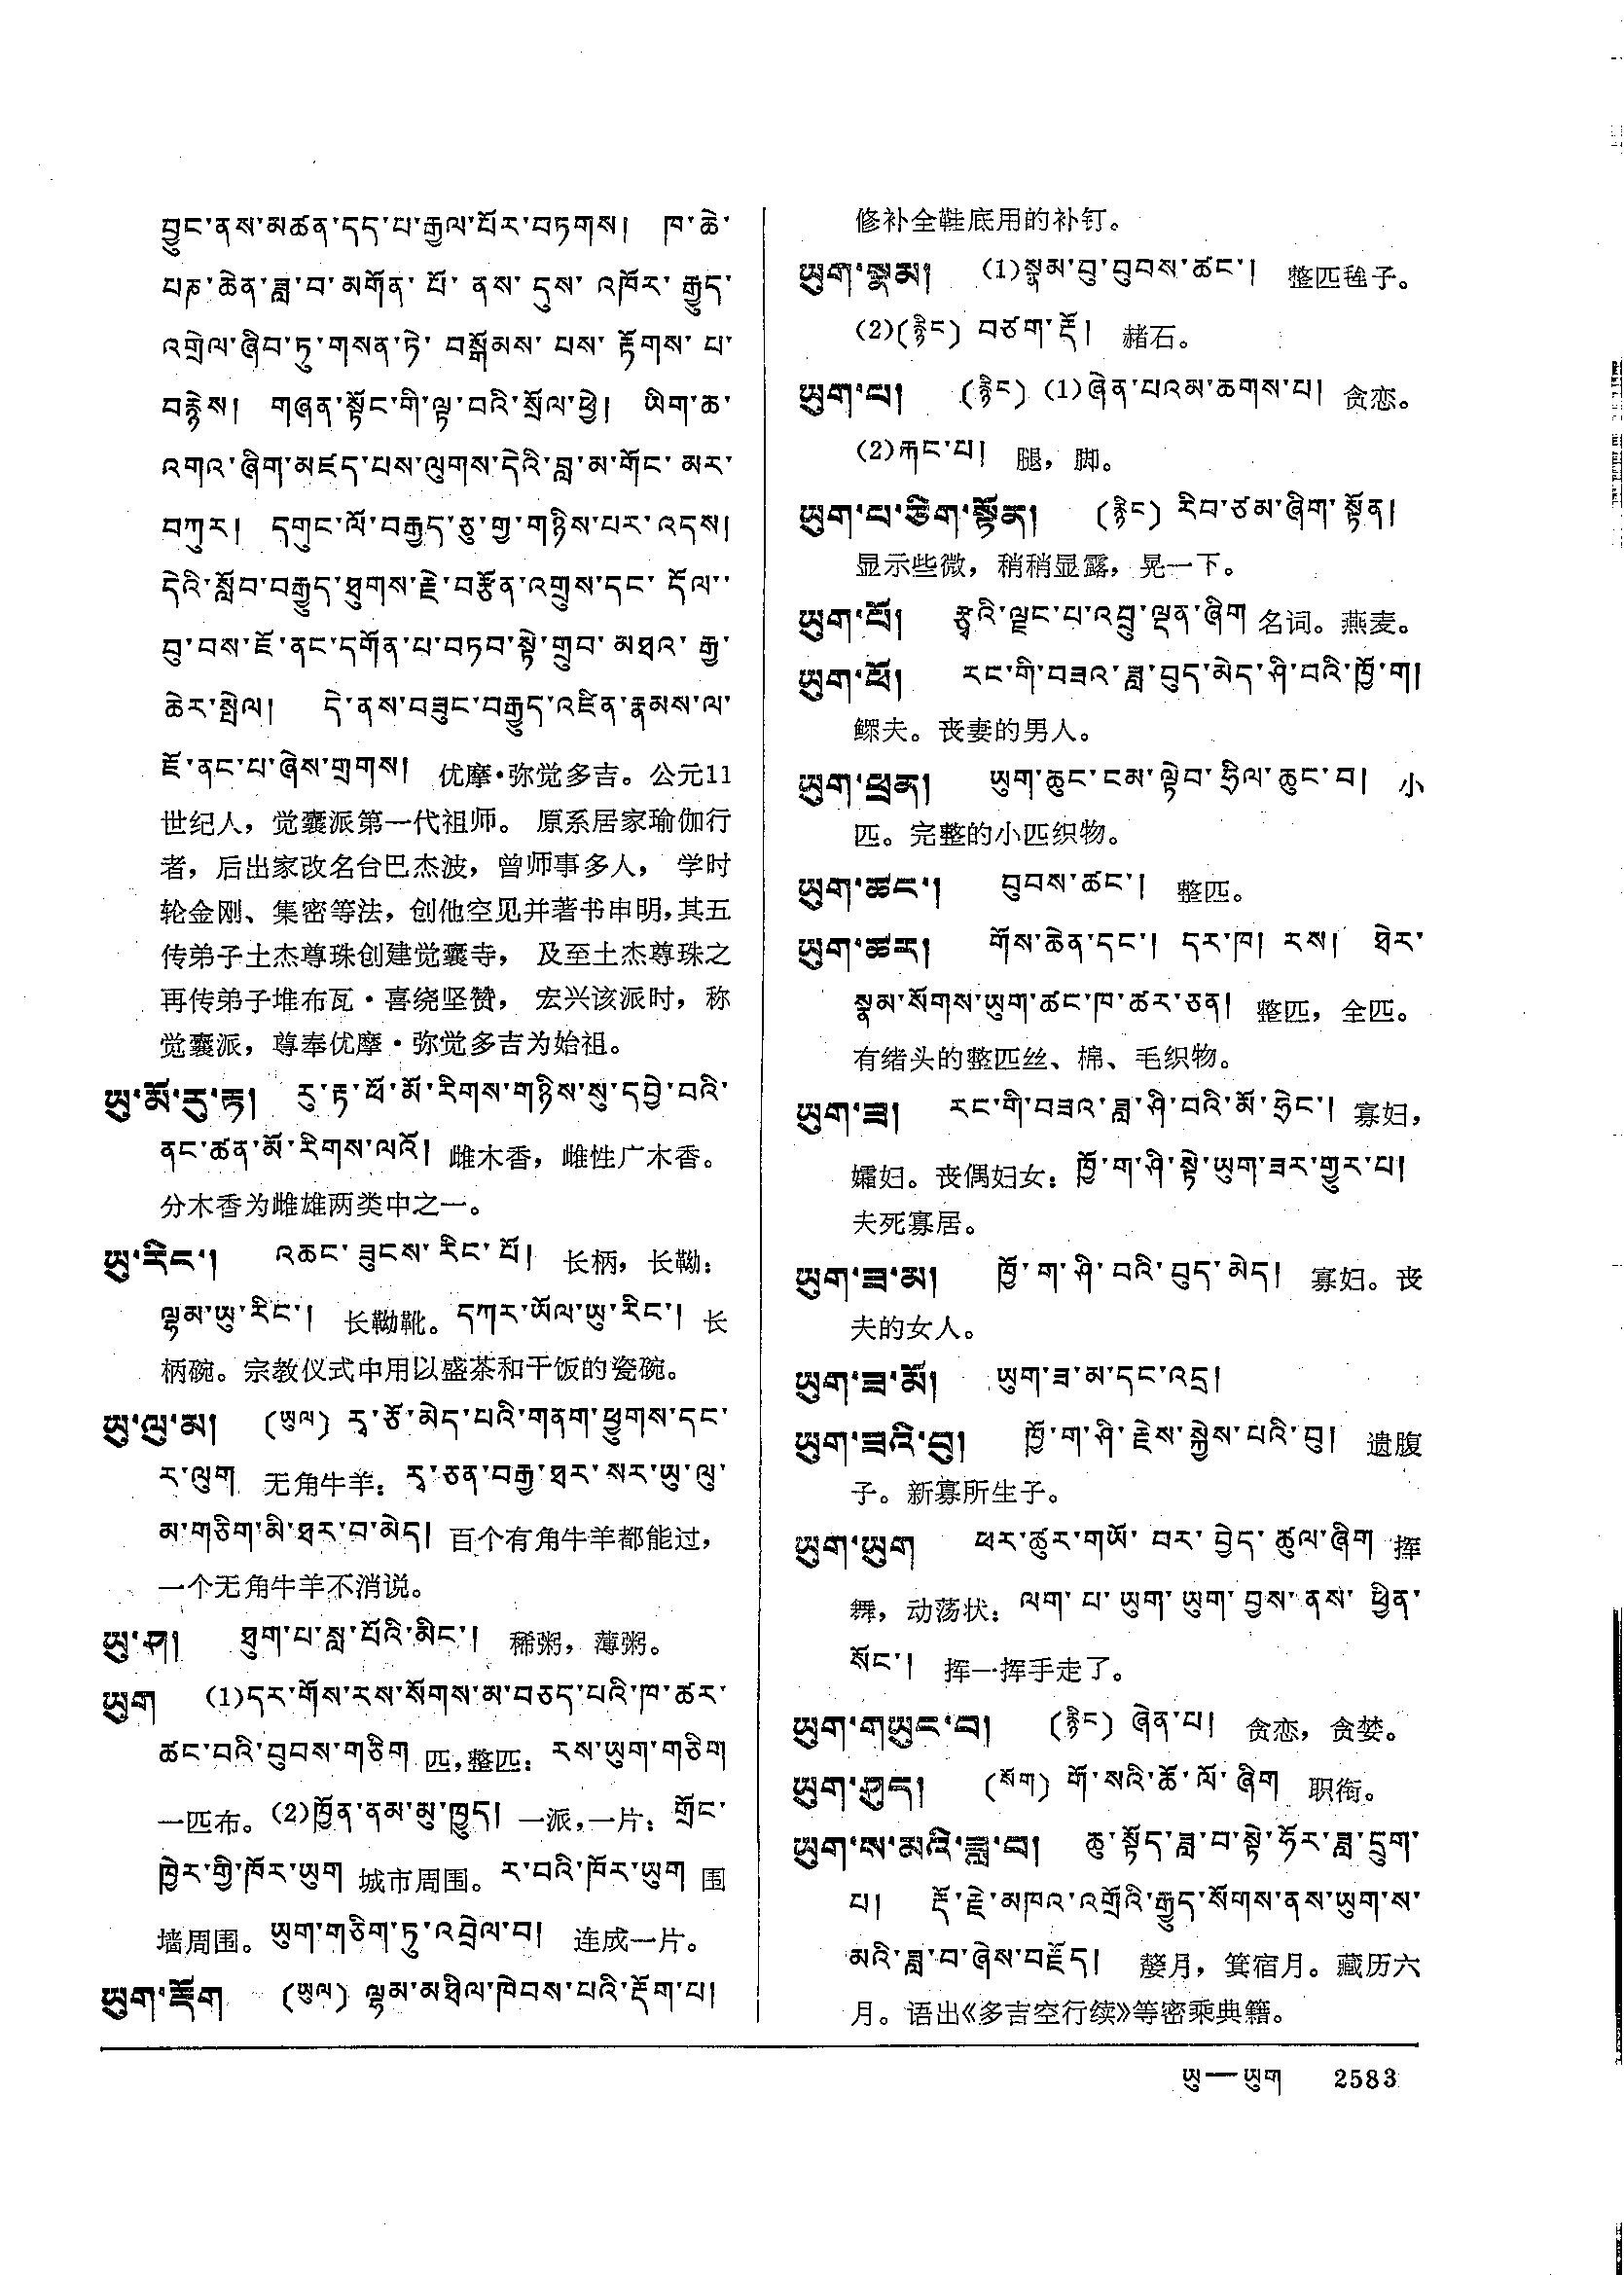 བྱུང་ནས་མཚན་དད་པ་རྒྱལ་པོར་བཏགས། ཁ་ཆེ་
པཎ་ཆེན་ཟླ་བ་མགོན་པོ་ནས་དུས་འཁོར་རྒྱུད་
འགྲེལ་ཞིབ་ཏུ་གསན་ཏེ་བསྒོམས་པས་རྟོགས་པ་
བརྙེས། གཞན་སྟོང་གི་ལྟ་བའི་སྲོལ་ཕྱེ། ཡིག་ཆ་
འགའ་ཞིག་མཛད་པས་ལུགས་དེའི་བླ་མ་གོང་མར་
བཀུར། དགུང་ལོ་བརྒྱད་ཅུ་གྱ་གཉིས་པར་འདས།
དེའི་སློབ་བརྒྱུད་ཐུགས་རྗེ་བརྩོན་འགྲུས་དང་དོལ་
བུ་བས་ཇོ་ནང་དགོན་པ་བཏབ་སྟེ་གྲུབ་མཐའ་རྒྱ་
ཆེར་སྤེལ། དེ་ནས་བཟུང་བརྒྱུད་འཛིན་རྣམས་ལ་
ཇོ་ནང་པ་ཞེས་གྲགས། 优摩·弥觉多吉。公元11
世纪人，觉囊派第一代祖师。原系居家瑜伽行
者，后出家改名台巴杰波，曾师事多人，学时
轮金刚、集密等法，创他空见并著书申明，其五
传弟子土杰尊珠创建觉囊寺，及至土杰尊珠之
再传弟子堆布瓦·喜绕坚赞，宏兴该派时，称
觉囊派，尊奉优摩·弥觉多吉为始祖。
ཡུ་མོ་རུ་རྟ། རུ་རྟ་ཕོ་མོ་རིགས་གཉིས་སུ་དབྱེ་བའི་
ནང་ཚན་མོ་རིགས་ལའོ། 雌木香，雌性广木香。
分木香为雌雄两类中之一。
ཡུ་རིང་། འཆང་ཟུངས་རིང་པོ། 长柄，长靿：
ལྷམ་ཡུ་རིང་། 长靿靴。དཀར་ཡོལ་ཡུ་རིང་། 长
柄碗。宗教仪式中用以盛茶和干饭的瓷碗。
ཡུ་ལུ་མ། (ཡུལ) རྭ་ཅོ་མེད་པའི་གནག་ཕྱུགས་དང་
ར་ལུག 无角牛羊：རྭ་ཅན་བརྒྱ་ཐར་སར་ཡུ་ལུ་
མ་གཅིག་མི་ཐར་བ་མེད། 百个有角牛羊都能过，
一个无角牛羊不消说。
ཡུ་ཤ། ཐུག་པ་སླ་པོའི་མིང་། 稀粥，薄粥。
ཡུག (1)དར་གོས་རས་སོགས་མ་བཅད་པའི་ཁ་ཚར་
ཚང་བའི་བུབས་གཅིག 匹，整匹：རས་ཡུག་གཅིག
一匹布。(2)ཁྱོན་ནམ་མུ་ཁྱུད། 一派，一片：གྲོང་
ཁྱེར་གྱི་ཁོར་ཡུག 城市周围。ར་བའི་ཁོར་ཡུག 围
墙周围。ཡུག་གཅིག་ཏུ་འབྲེལ་བ། 连成一片。
ཡུག་རྡོག (ཡུལ) ལྷམ་མཐིལ་ཁེབས་པའི་རྡོག་པ།
修补全鞋底用的补钉。
ཡུག་སྣམ། (1)སྣམ་བུ་བུབས་ཚང་། 整匹氆子。
(2)(རྙིང) བཙག་རྡོ། 赭石。
ཡུག་པ། (རྙིང) (1)ཞེན་པའམ་ཆགས་པ། 贪恋。
(2)རྐང་པ། 腿，脚。
ཡུག་པ་ཅིག་སྟོན། (རྙིང) རིབ་ཙམ་ཞིག་སྟོན།
显示些微，稍稍显露，晃一下。
ཡུག་པོ། རྩྭའི་ལྗང་པ་འབྲུ་ལྡན་ཞིག 名词。燕麦。
ཡུག་ཕོ། རང་གི་བཟའ་ཟླ་བུད་མེད་ཤི་བའི་ཁྱོ་ག།
鳏夫。丧妻的男人。
ཡུག་ཕྲན། ཡུག་ཆུང་ངམ་ལྟེབ་ཧྲིལ་ཆུང་བ། 小
匹。完整的小匹织物。
ཡུག་ཚང་། བུབས་ཚང་། 整匹。
ཡུག་ཚད། གོས་ཆེན་དང་། དར་ཁ། རས། ཐེར་
སྣམ་སོགས་ཡུག་ཚང་ཁ་ཚར་ཅན། 整匹，全匹。
有绪头的整匹丝、棉、毛织物。
ཡུག་ཟ། རང་གི་བཟའ་ཟླ་ཤི་བའི་མོ་ཧྲེང་། 寡妇，
孀妇。丧偶妇女：ཁྱོ་ག་ཤི་སྟེ་ཡུག་ཟར་གྱུར་པ།
夫死寡居。
ཡུག་ཟ་མ། ཁྱོ་ག་ཤི་བའི་བུད་མེད། 寡妇。丧
夫的女人。
ཡུག་ཟ་མོ། ཡུག་ཟ་མ་དང་འདྲ།
ཡུག་ཟའི་བུ། ཁྱོ་ག་ཤི་རྗེས་སྐྱེས་པའི་བུ། 遗腹
子。新寡所生子。
ཡུག་ཡུག ཕར་ཚུར་གཡོ་བར་བྱེད་ཚུལ་ཞིག 挥
舞，动荡状：ལག་པ་ཡུག་ཡུག་བྱས་ནས་ཕྱིན་
སོང་། 挥一挥手走了。
ཡུག་གཡུང་བ། (རྙིང) ཞེན་པ། 贪恋，贪婪。
ཡུག་ཤུད། (སོག) གོ་སའི་ཆོ་ལོ་ཞིག 职衔。
ཡུག་ས་མའི་ཟླ་བ། ཆུ་སྟོད་ཟླ་བ་སྟེ་ཧོར་ཟླ་དྲུག་
པ། རྡོ་རྗེ་མཁའ་འགྲོའི་རྒྱུད་སོགས་ནས་ཡུག་ས་
མའི་ཟླ་བ་ཞེས་བརྗོད། 嫠月，箕宿月。藏历六
月。语出《多吉空行续》等密乘典籍。
ཡུ—ཡུག 2583